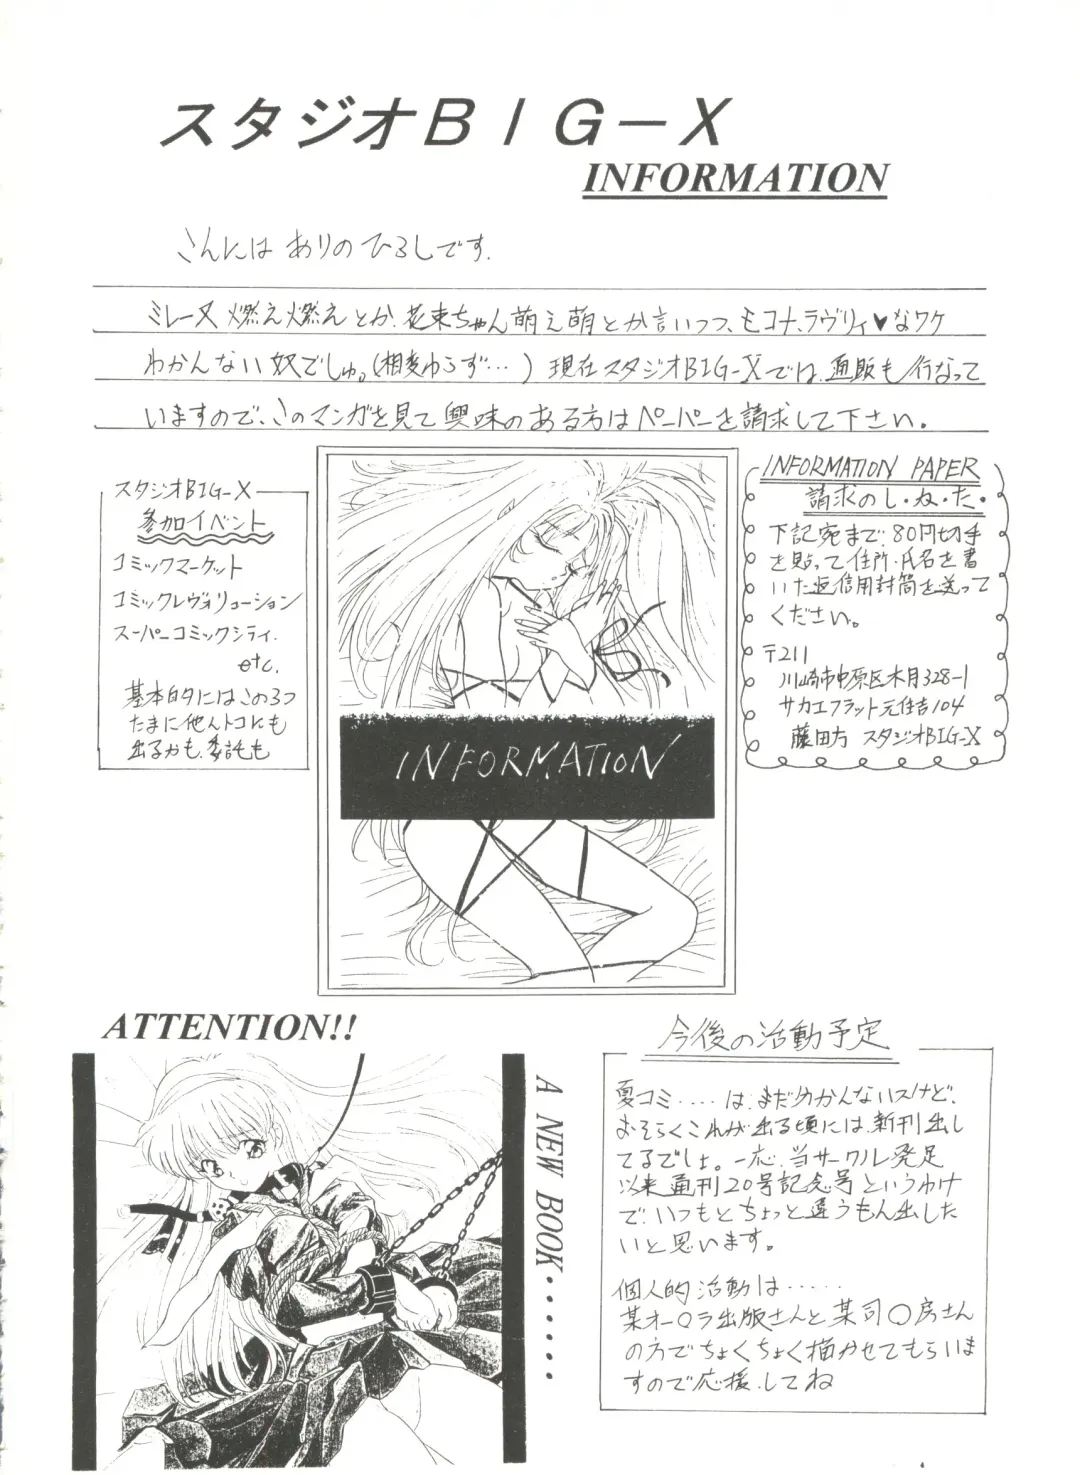 スタジオBIG-X
INFORMATION
こんにちは ありのひろしです.
ミレーヌ燃え燃えとか、花束ちゃん萌え萌とか言いつつ、モコナ、ラヴリィ♥なワケ
わかんない奴でしゅ。(相変わらず…) 現在スタジオBIG-Xでは、通販も行なって
いますので、このマンガを見て興味のある方はペーパーを請求して下さい。
スタジオBIG-X
参加イベント
コミックマーケット
コミックレヴォリューション
スーパーコミックシティ.
etc.
基本的にはこの3つ
たまに他んトコにも
出るかも、委託も
INFORMATION
INFORMATION PAPER
請求のし・ね・た・
下記宛まで、80円切手
を貼って住所・氏名を書
いた返信用封筒を送って
ください。
〒211
川崎市中原区木月328-1
サカエフラット元住吉104
藤田方 スタジオBIG-X
ATTENTION!!
A NEW BOOK・・・・・・・
今後の活動予定
夏コミ・・・・は、まだ分かんないスけど、
おそらくこれが出る頃には、新刊出し
てるでしょ。一応、当サークル発足
以来通刊20号記念号というわけ
で、いつもとちょっと違うもん出した
いと思います。
個人的活動は・・・・・
某オー○ラ出版さんと、某司○房さん
の方でちょくちょく描かせてもらいま
すので応援してね